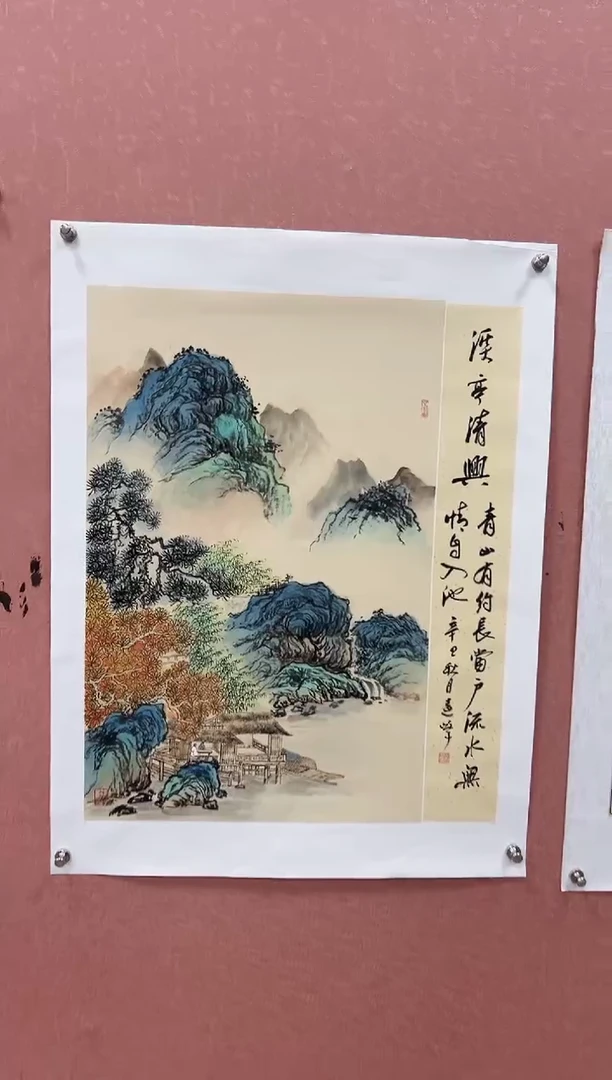 溪亭清興
青山有約長當戶流水無
情自入池 辛丑秋月